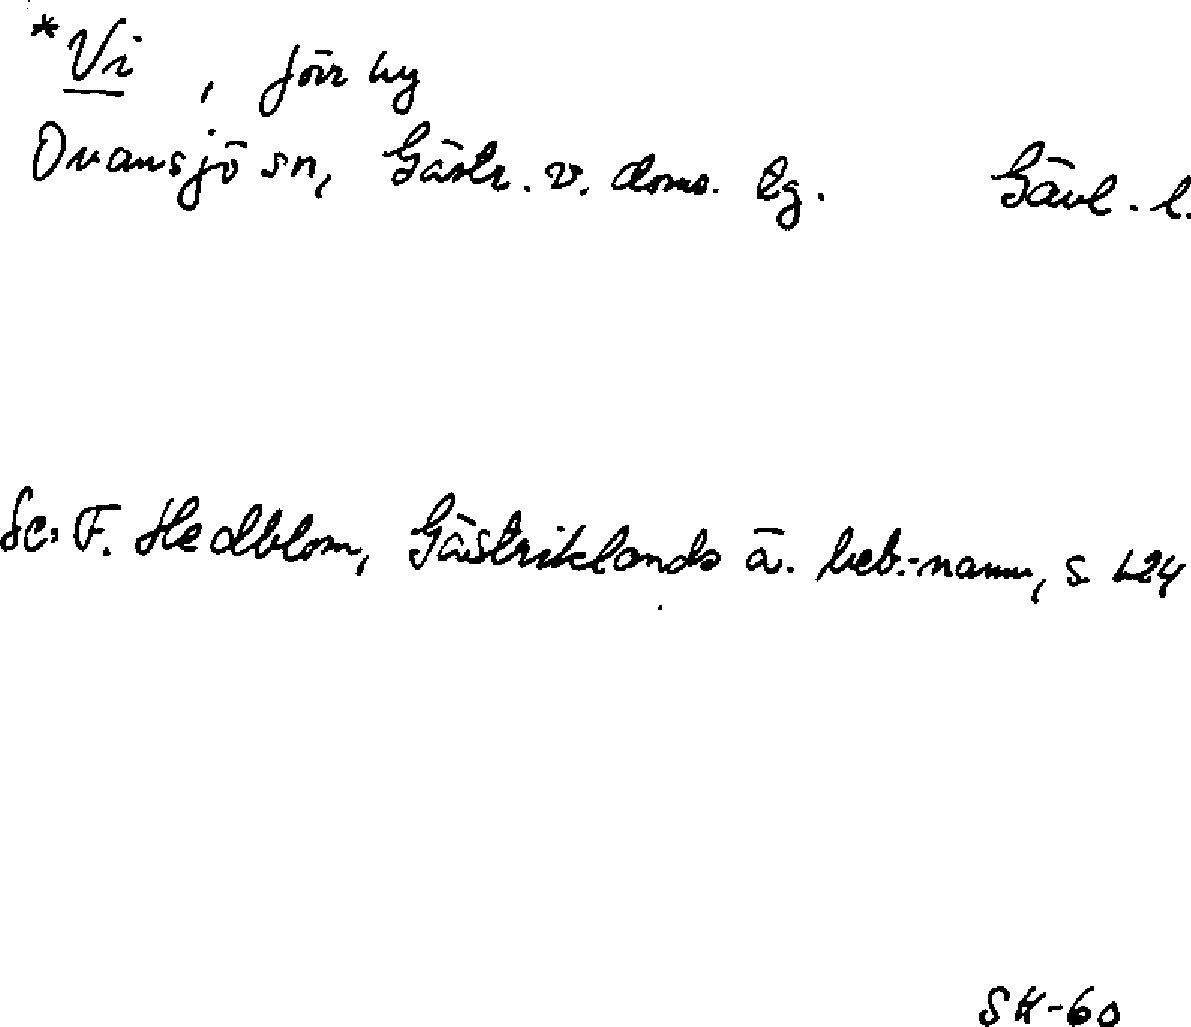 *Vi , förr by
Ovansjö sn, Gästr. v. doms. lg. Gävl. l.
Se: F. Hedblom, Gästriklands ä. beb.-namn, s 124
SH-60